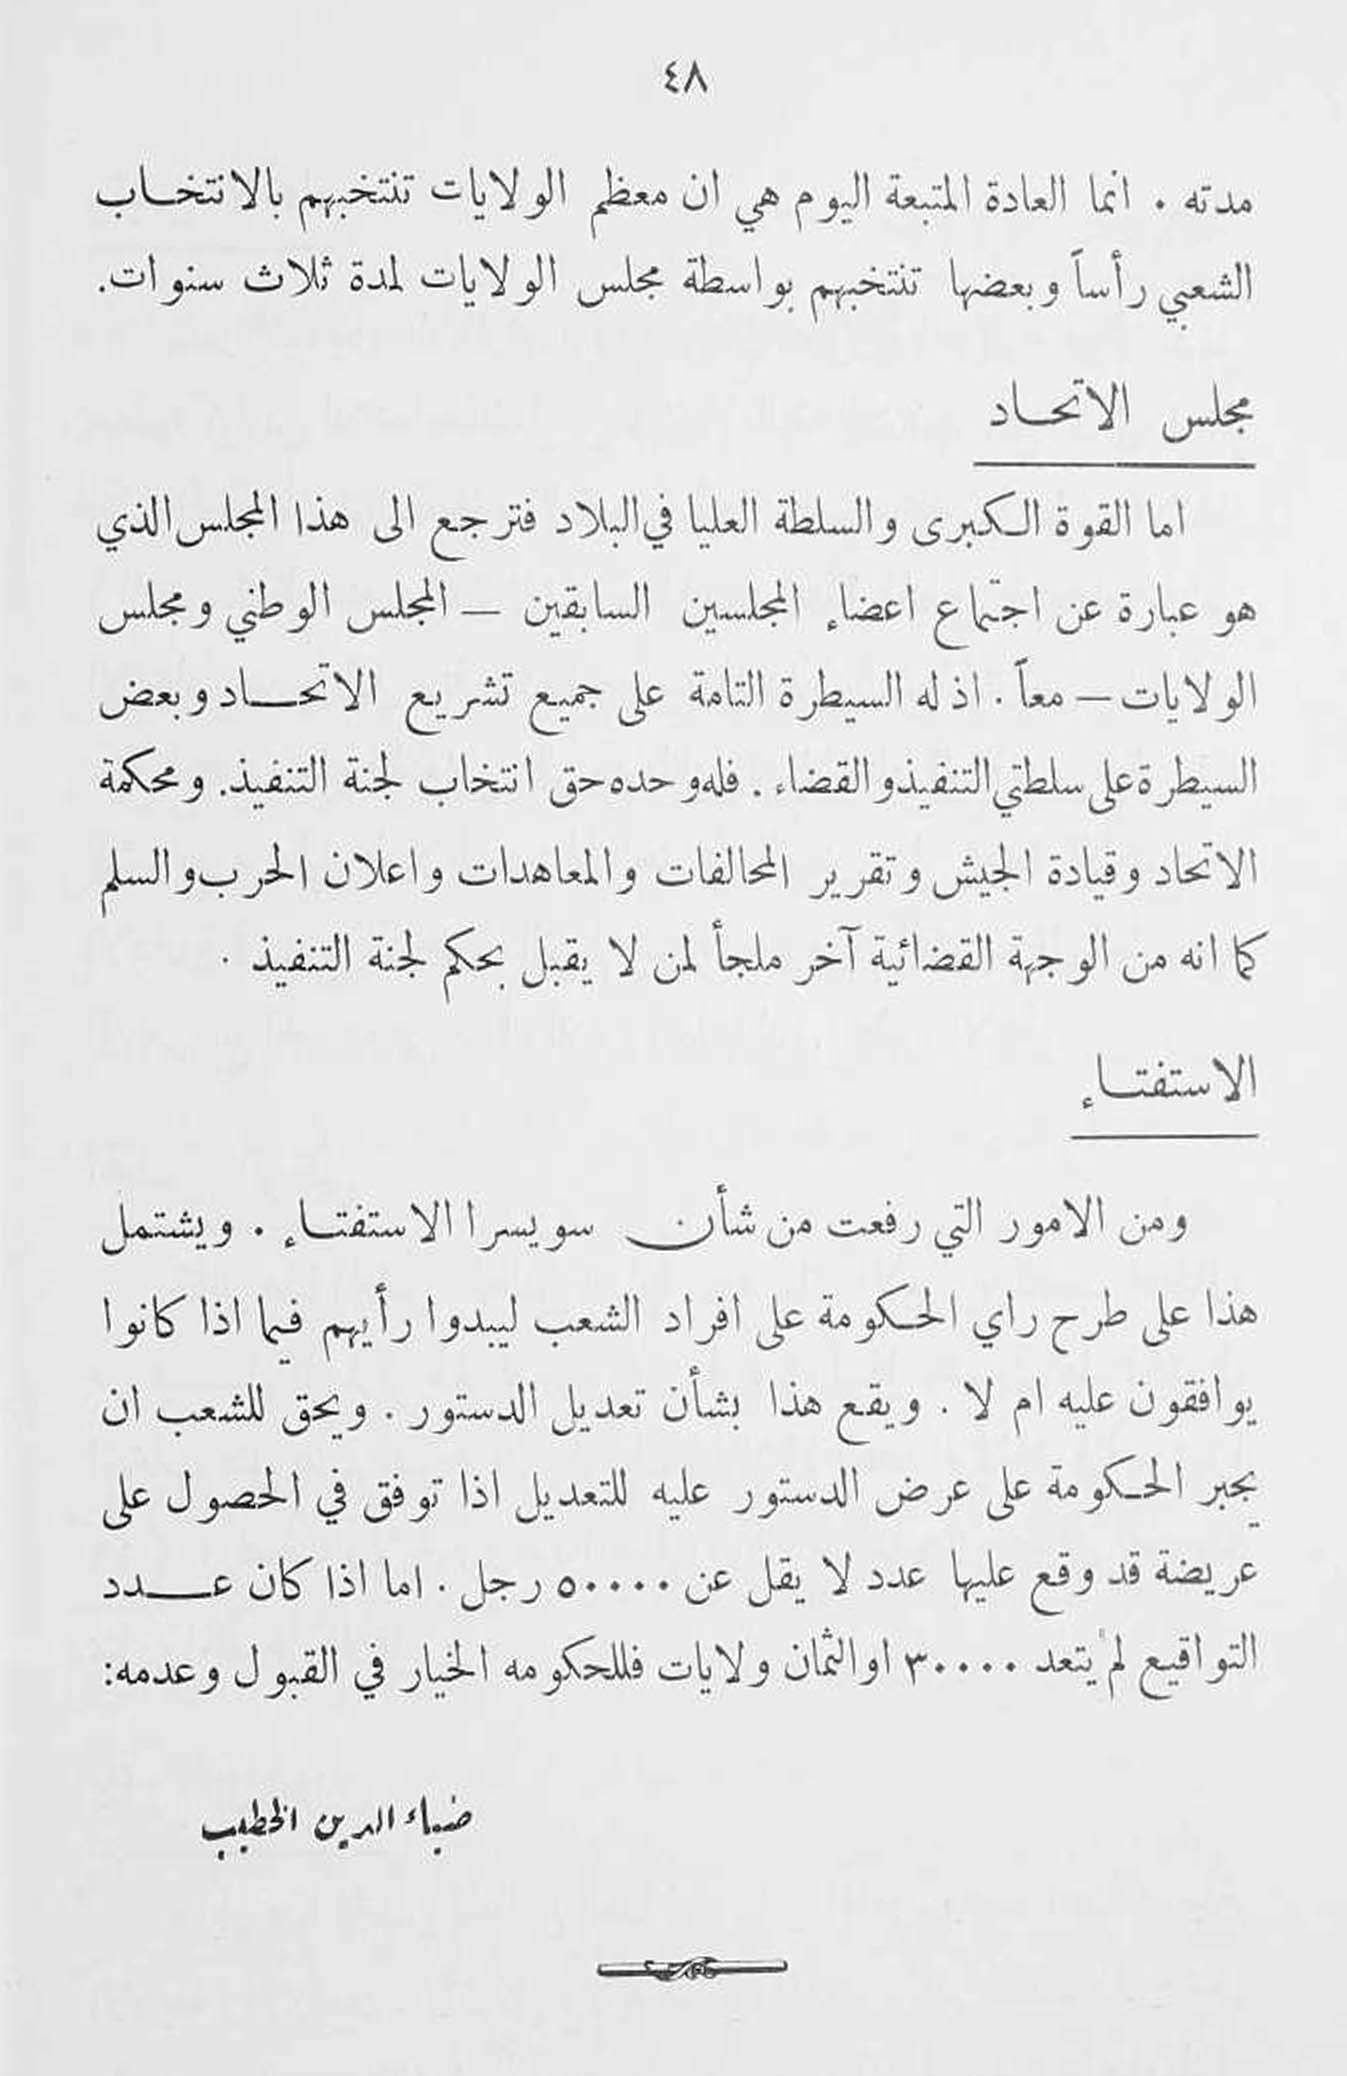 ٤٨
مدته . انما العادة المتبعة اليوم هي ان معظم الولايات تنتخبهم بالانتخاب
الشعبي رأساً وبعضها تنتخبهم بواسطة مجلس الولايات لمدة ثلاث سنوات.
مجلس الاتحاد
اما القوة الكبرى والسلطة العليا في البلاد فترجع الى هذا المجلس الذي
هو عبارة عن اجتماع اعضاء المجلسين السابقين – المجلس الوطني ومجلس
الولايات – معاً . اذ له السيطرة التامة على جميع تشريع الاتحاد وبعض
السيطرة على سلطتي التنفيذ والقضاء . فله وحده حق انتخاب لجنة التنفيذ. ومحكمة
الاتحاد وقيادة الجيش وتقرير المحالفات والمعاهدات واعلان الحرب والسلم
كما انه من الوجهة القضائية آخر ملجأ لمن لا يقبل بحكم لجنة التنفيذ .
الاستفتاء
ومن الامور التي رفعت من شأن سويسرا الاستفتاء . ويشتمل
هذا على طرح راي الحكومة على افراد الشعب ليبدوا رأيهم فيما اذا كانوا
يوافقون عليه ام لا . ويقع هذا بشأن تعديل الدستور . ويحق للشعب ان
يجبر الحكومة على عرض الدستور عليه للتعديل اذا توفق في الحصول على
عريضة قد وقع عليها عدد لا يقل عن ٥٠٠٠٠ رجل . اما اذا كان عدد
التواقيع لم يتعد ٣٠٠٠٠ او الثمان ولايات فللحكومه الخيار في القبول وعدمه:
ضياء الدين الخطيب